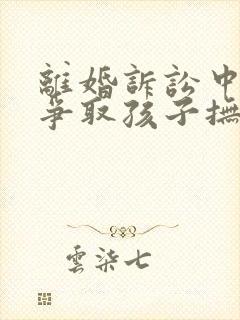 離婚訴訟中
爭取孩子撫
雲柒七